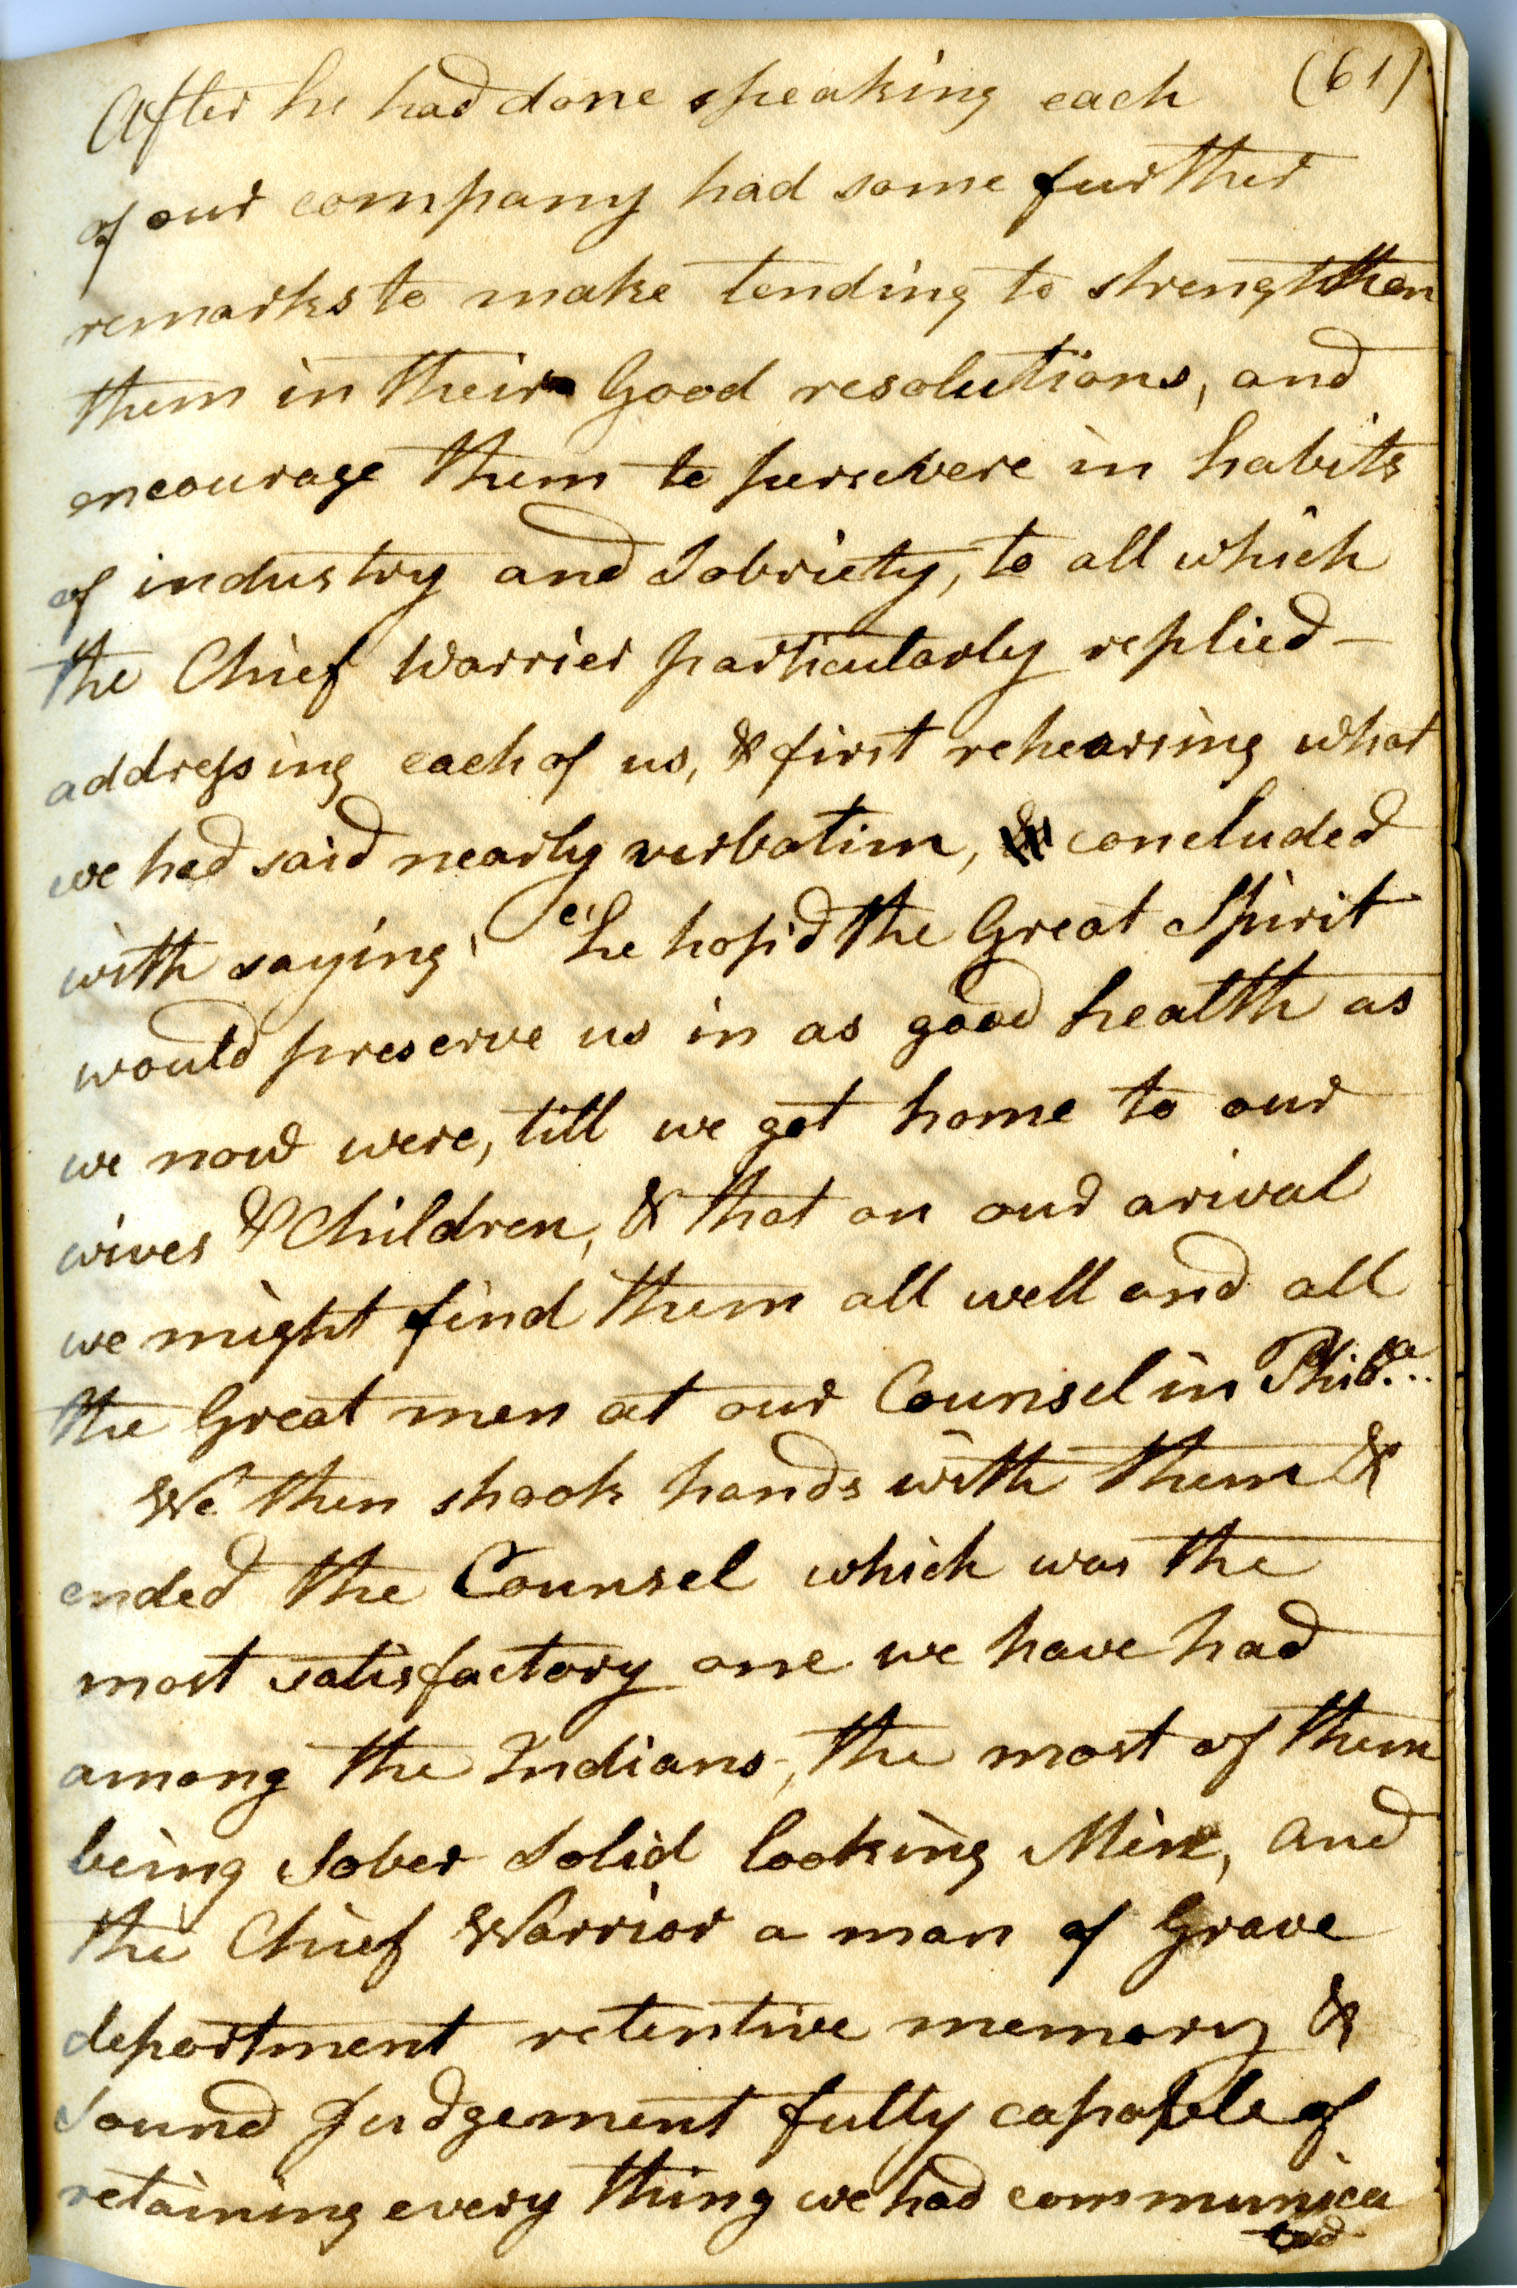 (61)
After he had done speaking each
of our company had some further
remarks to make tending to strengthen
them in their Good resolutions, and
encourage them to persevere in habits
of industry and Sobriety, to all which
the Chief Warrier particularly replied —
addressing each of us, & first rehearsing what
we had said nearly verbatim, concluded
with saying, he hop'd the Great Spirit
would preserve us in as good health as
we now were, till we get home to our
wives & Children, & that on our arival
we might find them all well and all
the Great men at our Counsel in Philada..
We then shook hands with them &
ended the Counsel which was the
most satisfactory one we have had
among the Indians, the most of them
being Sober Solid looking Men, and
the Chief Warrior a man of Grave
deportment retentive memory &
Sound Judgement fully capable of
retaining every thing we had communica
ted